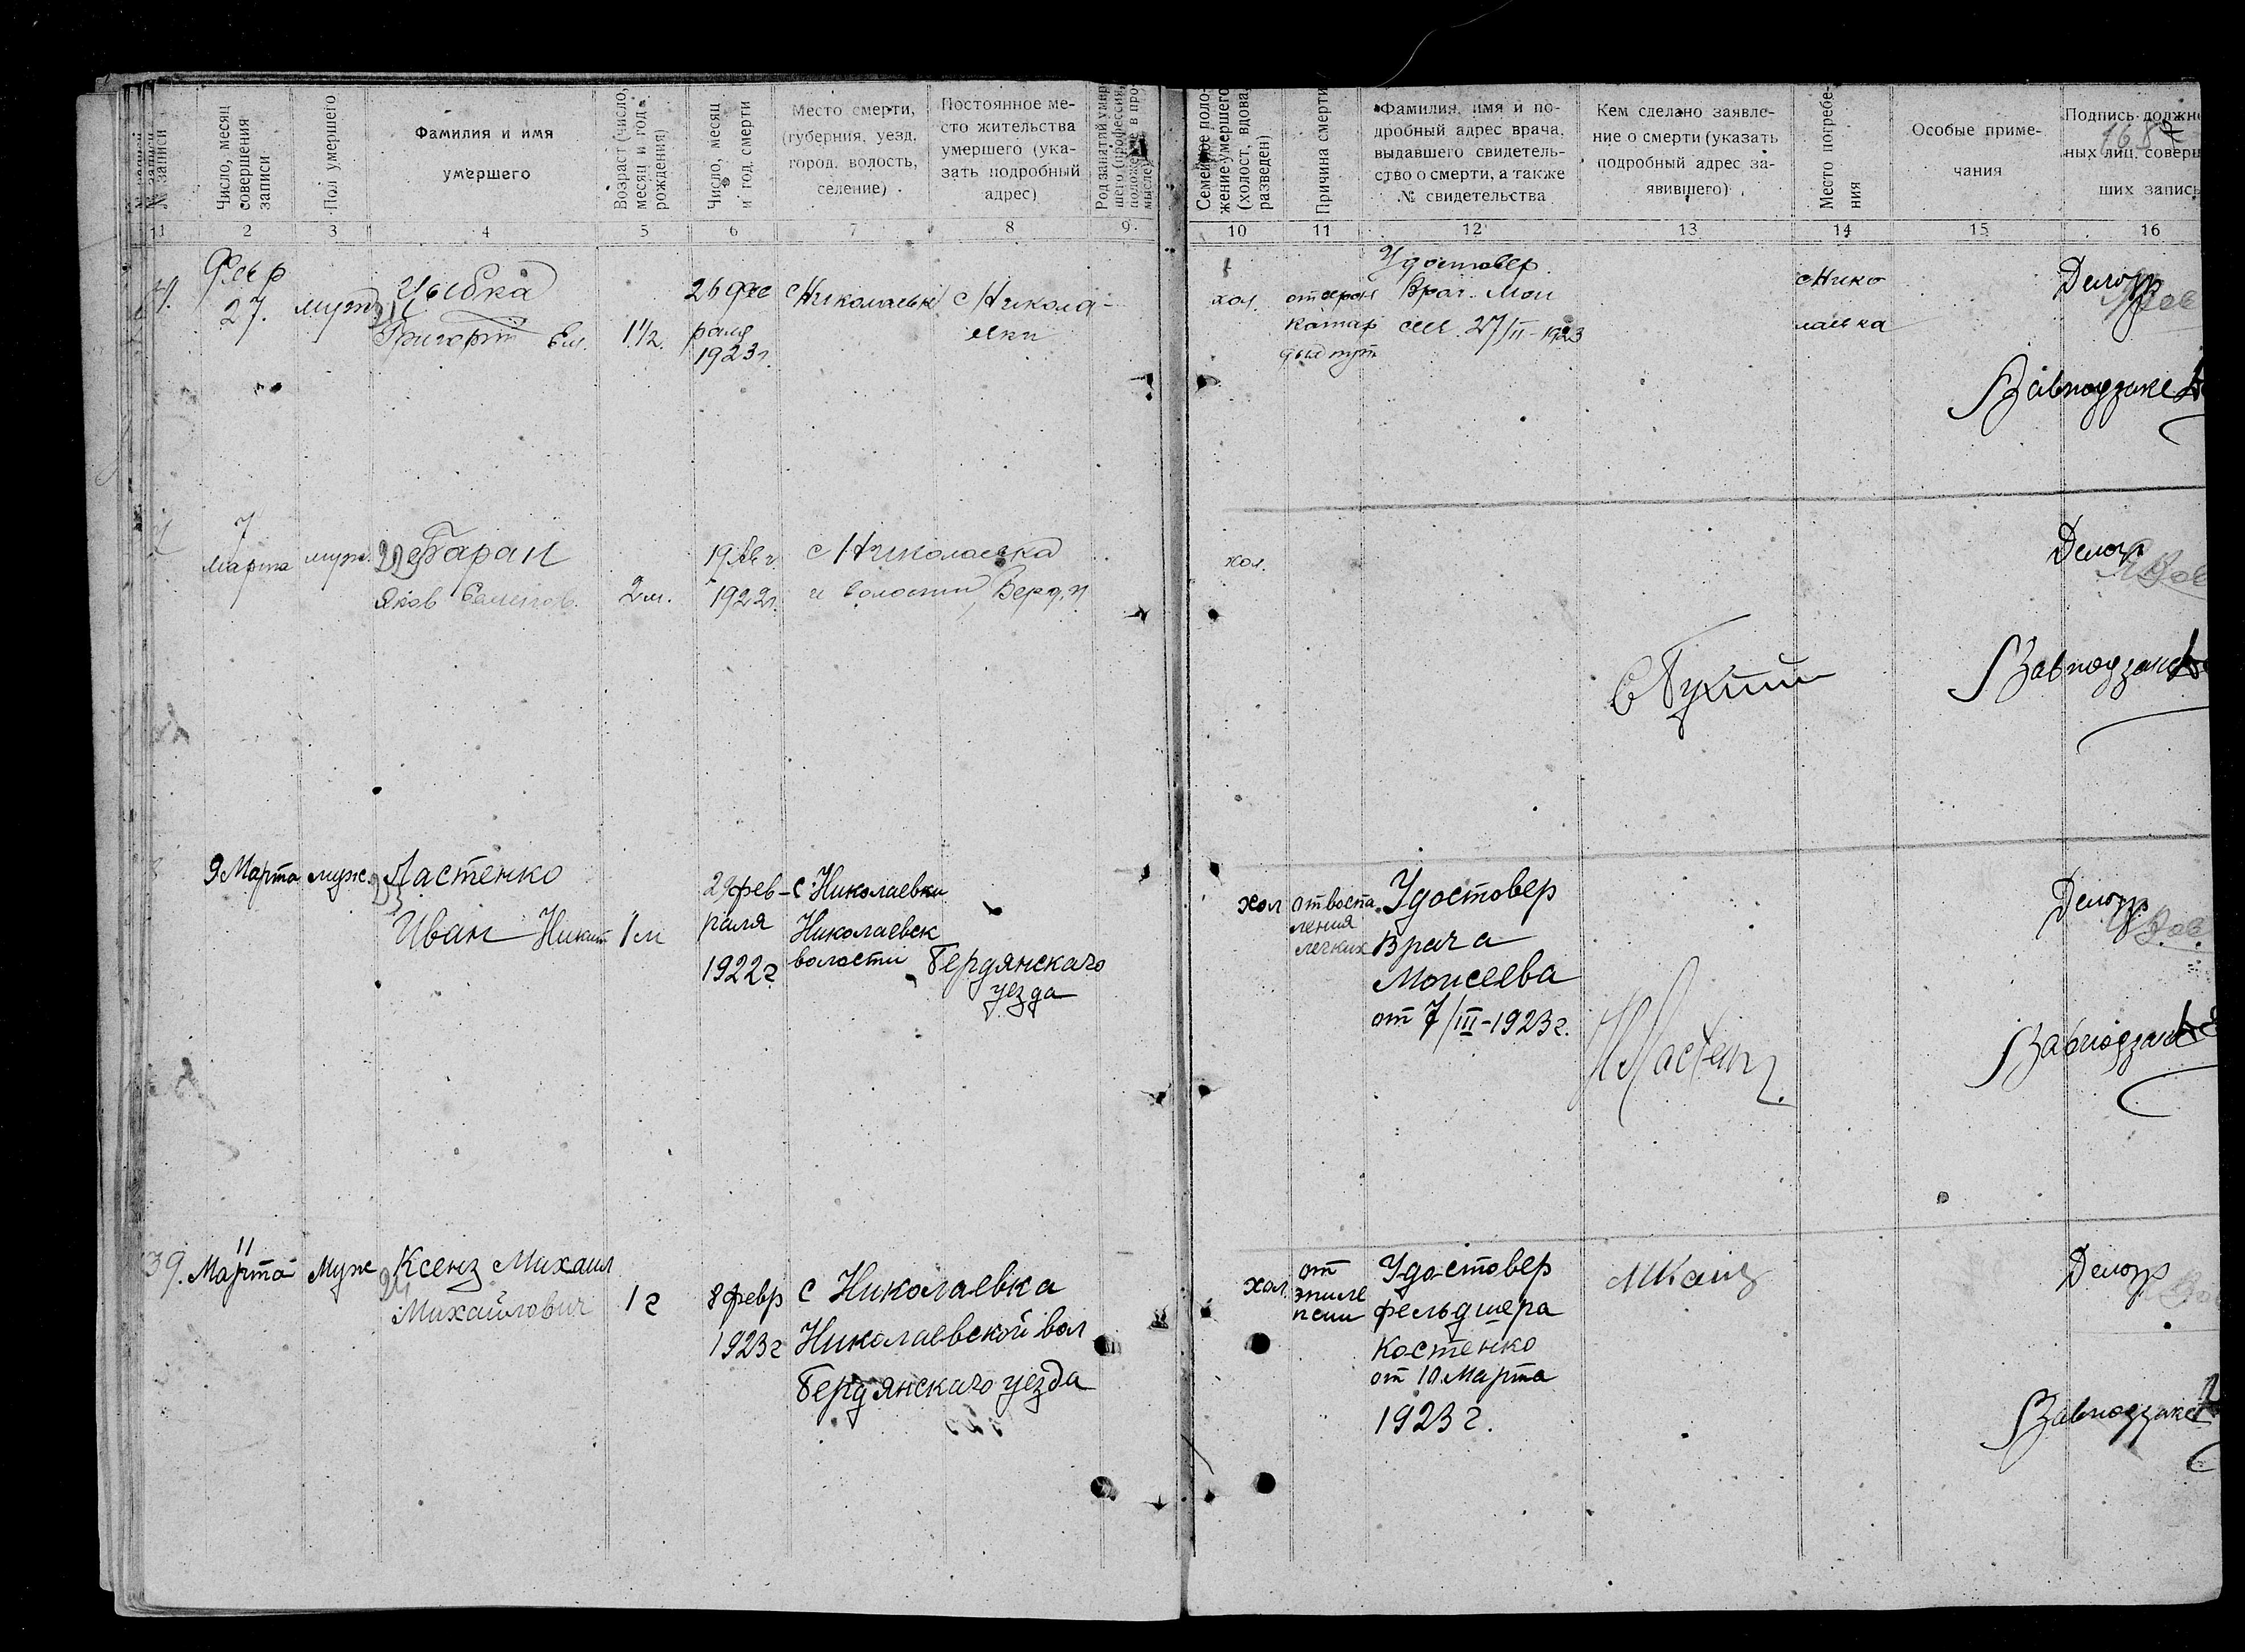 № записи
Число, месяц совершения записи
Пол умершего
Фамилия и имя
умершего
Возраст (число, месяц и год рождения)
Число, месяц и год смерти
Место смерти,
(губерния, уезд,
город, волость,
селение)
Постоянное ме-
сто жительства
умершего (ука-
зать подробный
адрес)
Семейное поло-
жение умершего
(холост, вдова,
разведен)
Причина смерти
Фамилия, имя и по-
дробный адрес врача,
выдавшего свидетель-
ство о смерти, а также
№ свидетельства
Кем сделано заявле-
ние о смерти (указать
подробный адрес за-
явившего)
Место погребе-
ния
Особые приме-
чания
Подпись должн
ных лиц, соверш
ших запись
1 2 3 4 5 6 7 8 9 10 11 12 13 14 15 16
Февр
27.
Цыбка
Григорий Ем.
1 1/2.
26 фев
раля
1923г.
с Николаевк
с Никола-
евки
хол.
Удостовер.
Врач. Мои
сее. 27/II-1923
с Нико
лаевка
Делопр
Завподзаке
7
марта
муж.
Таран
Яков Семенов.
2 м.
1922г.
с Николаевка
и волости, Берд. у
хол.
Делопр
Завподзаке
9 Марта
муж.
Ластенко
Иван Никит
1 м
29 фев-
раля
1922г
с. Николаевки
Николаевск
волости Бердянскаго
уезда
хол
от воспа
ления
легких
Удостовер
Врача
Моисеева
от 7/III-1923г.
Делопр
Завподзаке
39.
11
Марта
Муж
Ксенз Михаил
Михайлович
1 г
8 февр
1923г
с Николаевка
Николаевской вол
Бердянскаго уезда
хол.
от
эпиле
псии
Удостовер
фельдшера
Костенко
от 10 Марта
1923г.
Делопр
Завподзаке